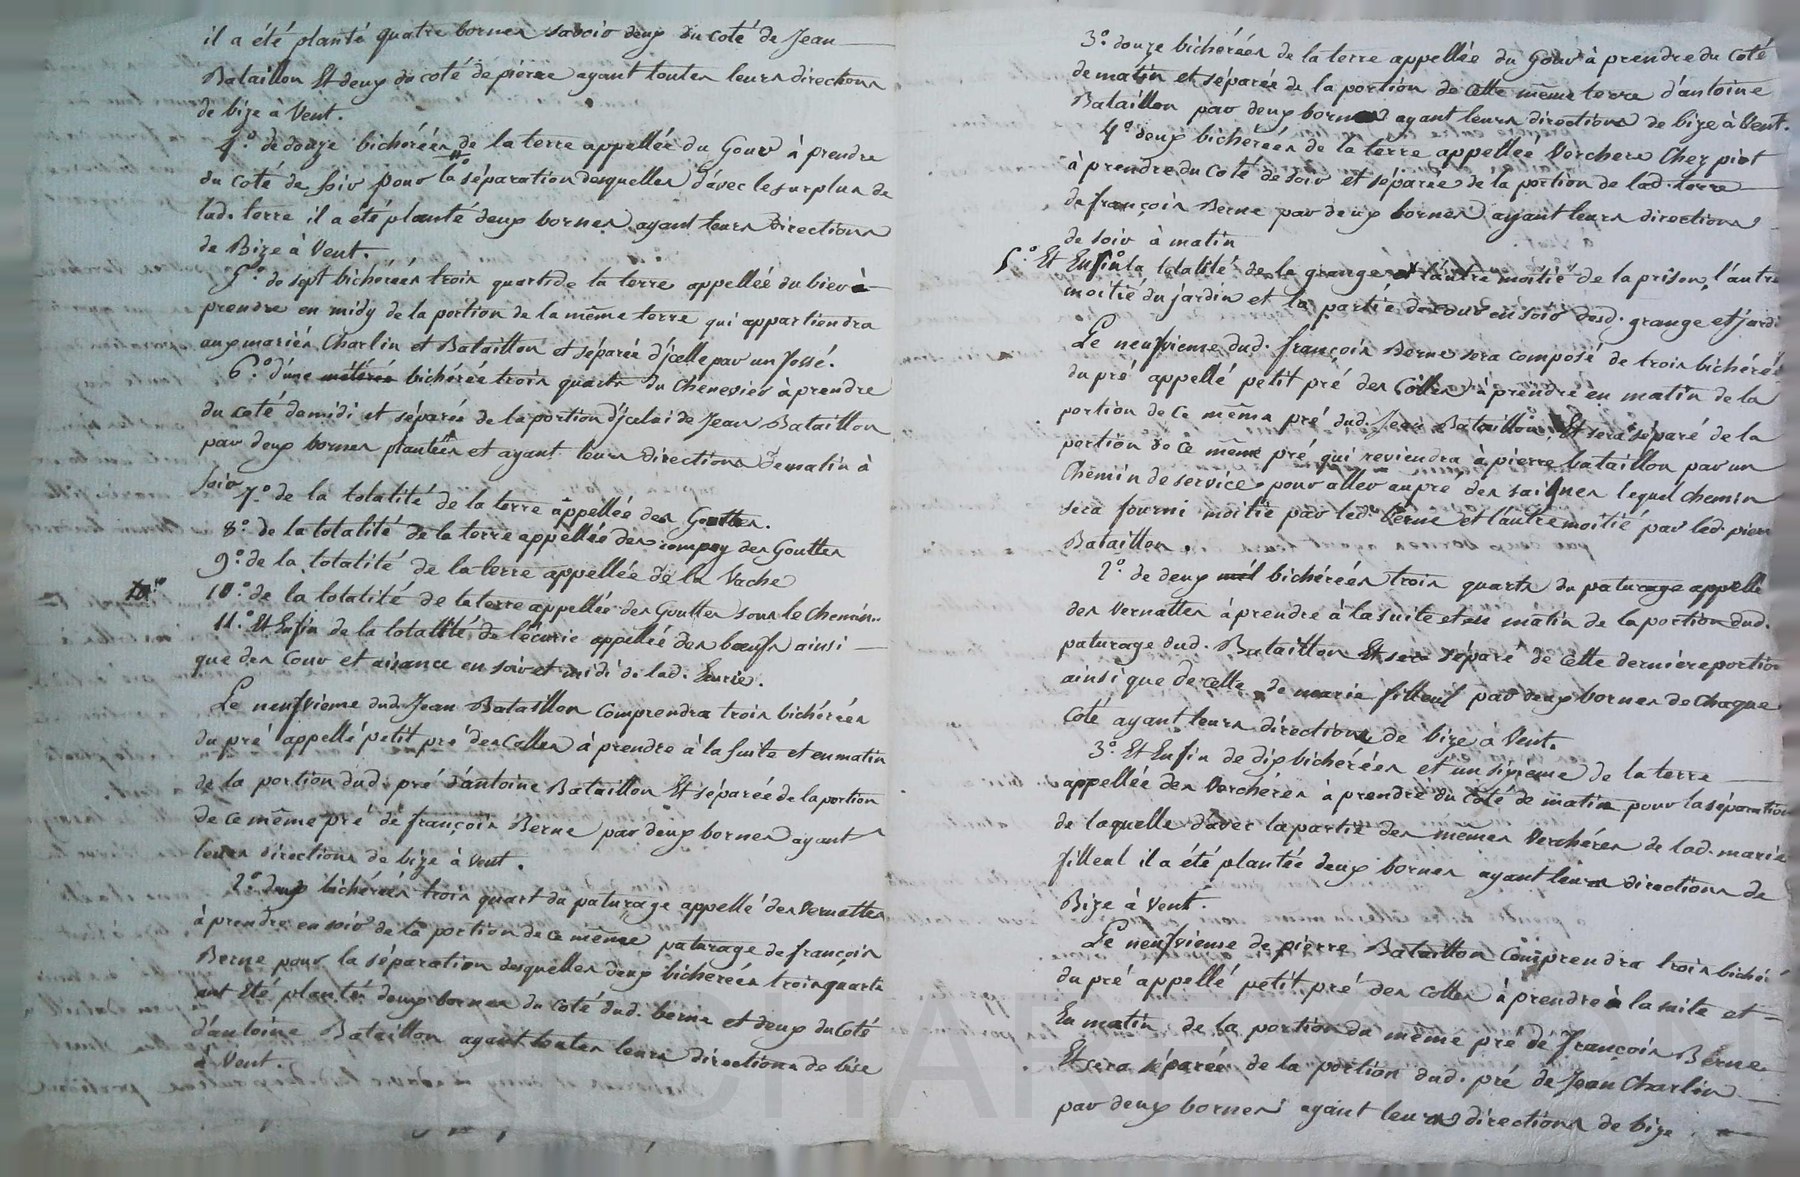 il a été planté quatre bornes savoir deux du coté de Jean
Bataillon Et deux du coté de pierre ayant toutes leurs directions
de bize à Vent.
4.° de douze bichérées de la terre appellée du Gour à prendre
du coté de soir pour la séparation desquelles d'avec le surplus de
lad. terre il a été planté deux bornes ayant leurs directions
de Bize à Vent.
5.° de sept bichérées trois quarts de la terre appellée du bier à
prendre en midy de la portion de la même terre qui appartiendra
aux mariés Charlin et Bataillon et séparée d'jcelle par un fossé.
6.° d'une métérée bichérée trois quarts du Chenevier à prendre
du coté de midi et séparée de la portion d'jcelui de Jean Bataillon
par deux bornes plantées et ayant leurs directions de matin à
soir
7.° de la totalité de la terre appellée des Gouttes.
8.° de la totalité de la terre appellée des rompay des Gouttes
9.° de la totalité de la terre appellée de la Vache
10.° 10.° de la totalité de la terre appellée des Gouttes sous le chemin..
11.° Et Enfin de la totalité de l'écurie appellée des bœufs ainsi
que des Cour et aisance en soir et midi de lad. Ecurie.
Le neufvieme dud. Jean Bataillon Comprendra trois bichérées
du pré appellé petit pré des Colles à prendre à la suite et en matin
de la portion dud. pré d'antoine Bataillon Et séparée de la portion
de ce même pré de françois Berne par deux bornes ayant
leurs directions de bize à Vent.
2.° deux bichérées trois quart du paturage appellé des Vernattes
à prendre en soir de la portion de ce même paturage de françois
Berne pour la séparation desquelles deux bichérées trois quarts
ont Eté plantés deux bornes du coté dud. berne et deux du Coté
d'antoine Bataillon ayant toutes leurs directions de bise
à Vent.
3.° douze bichérées de la terre appellée du Gour à prendre du Coté
de matin et séparée de la portion de Cette même terre d'antoine
Bataillon par deux bornes ayant leurs directions de bize à Vent.
4.° deux bichérées de la terre appellée Verchere Chez piot
à prendre du Coté de soir et séparée de la portion de lad. terre
de françois Berne par deux bornes ayant leurs directions
de soir à matin
5.° Et Enfin la totalité de la grange et l'autre moitié de la prison, l'autre
moitié du jardin et la partie de cour en soir desd. grange et jardi
Le neufvieme dud. françois Berne sera composé de trois bichéré
du pré appellé petit pré des Colles à prendre en matin de la
portion de Ce même pré dud. Jean Bataillon, Et sera séparé de la
portion de Ce même pré qui reviendra à pierre bataillon par un
Chemin de service pour aller au pré des saignes lequel chemin
sera fourni moitié par led. Berne et l'autre moitié par led. pierre
Bataillon.
2.° de deux bichérées trois quarts du paturage appellé
des Vernattes à prendre à la suite et en matin de la portion dud.
paturage dud. Bataillon Et sera séparé de Cette derniere portion
ainsi que de celle de marie filleul par deux bornes de Chaque
Coté ayant leurs directions de bize à Vent.
3.° Et Enfin de dix bichérées et un sixieme de la terre
appellée des Verchères à prendre du Coté de matin pour la séparation
de laquelle d'avec la partie des mêmes Verchéres de lad. marie
filleul il a été plantée deux bornes ayant leurs directions de
Bize à Vent.
Le neufvieme de pierre Bataillon Comprendra trois biché
du pré appellé petit pré des Colles à prendre à la suite et
En matin de la portion du même pré de françois Berne
Et sera séparée de la portion dud. pré de Jean Charlin
par deux bornes ayant leurs directions de bize